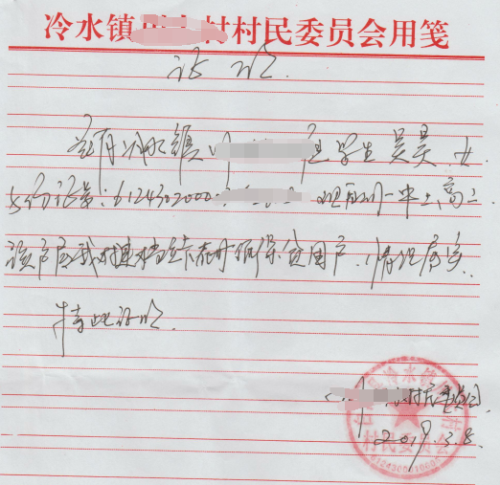 冷水镇 村村民委员会用笺
证明
兹有冷水镇 组学生吴昊,女
身份证号:612430200 现在 一中上高二
该户属我村建档立卡在册 贫困户,情况属实
特此证明
村民委员会
2019.3.8